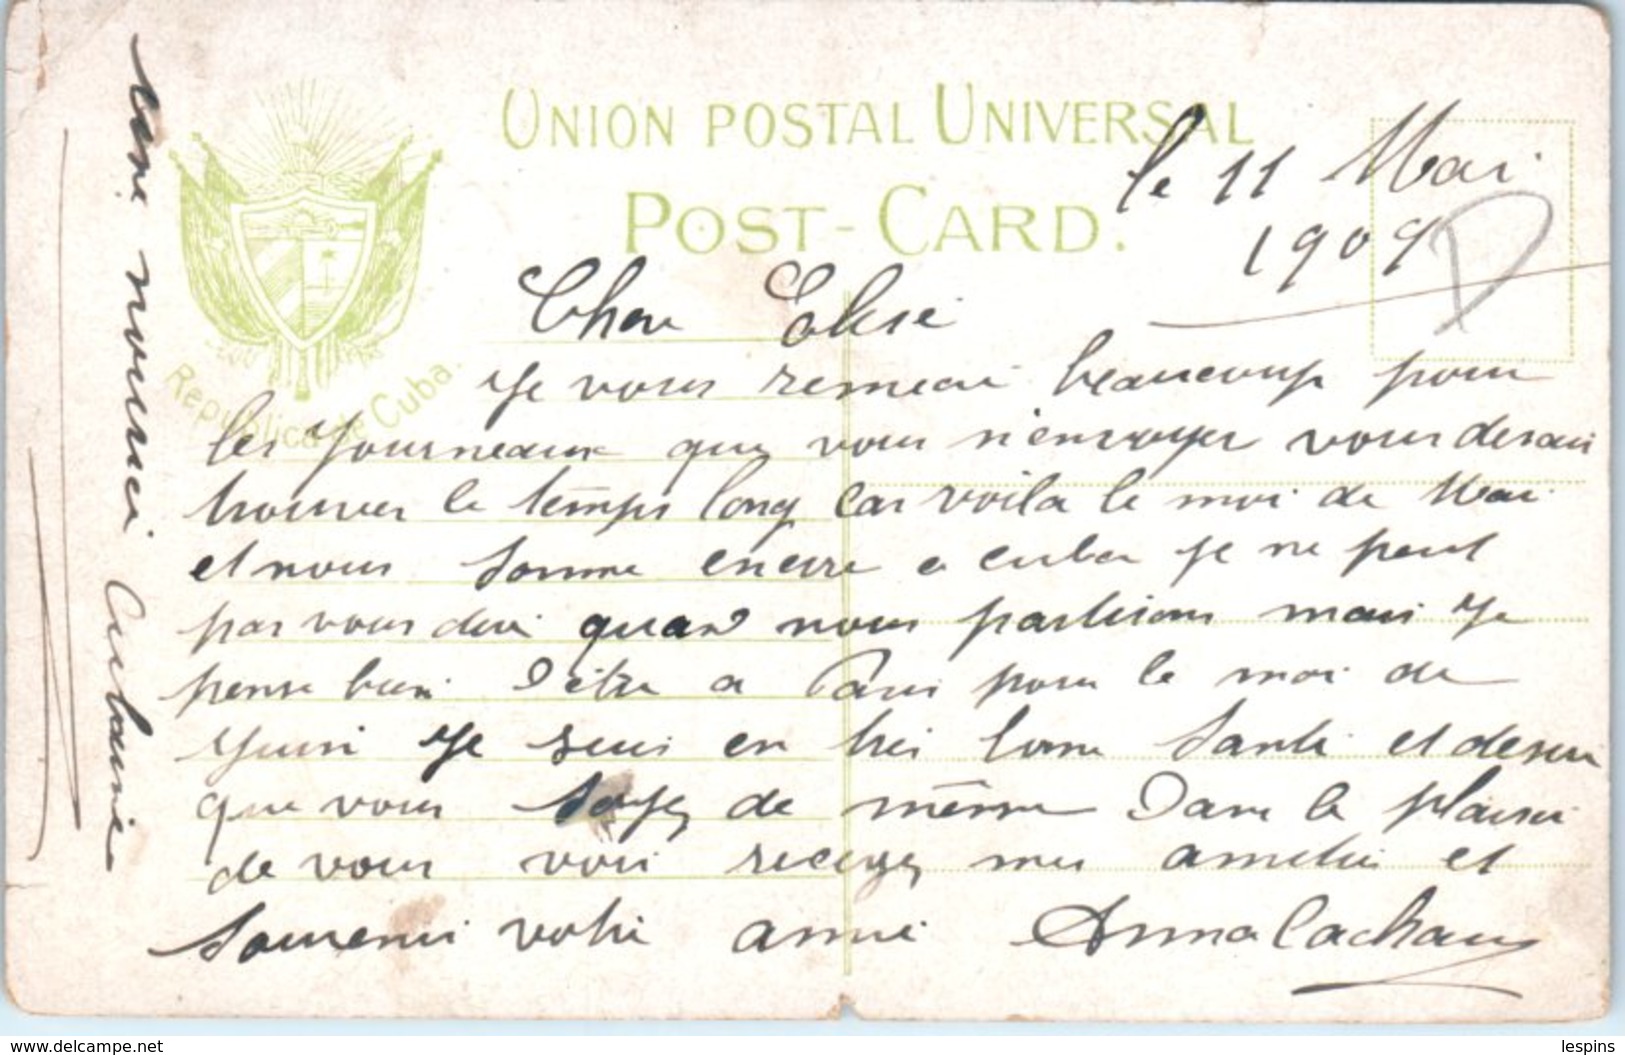 UNION POSTAL UNIVERSAL
POST-CARD.
Republica de Cuba.
le 11 Mai
1909
D
Cher
Je vous remerci beaucoup pour
les journeaux que vous n'envoyer vous devai
trouver le temps long car voila le moi de Mai
et nous somme encore a cuba je ne peut
pas vous dire quand nous partirons mais je
pense bien d'être a Paris pour le moi de
juin je suis en tres bonne santé et desire
que vous soyez de même Dans le plaisir
de vous voir recevez mes amitié et
souvenir votre amie Anna Lachaux
www.delcampe.net
lespins